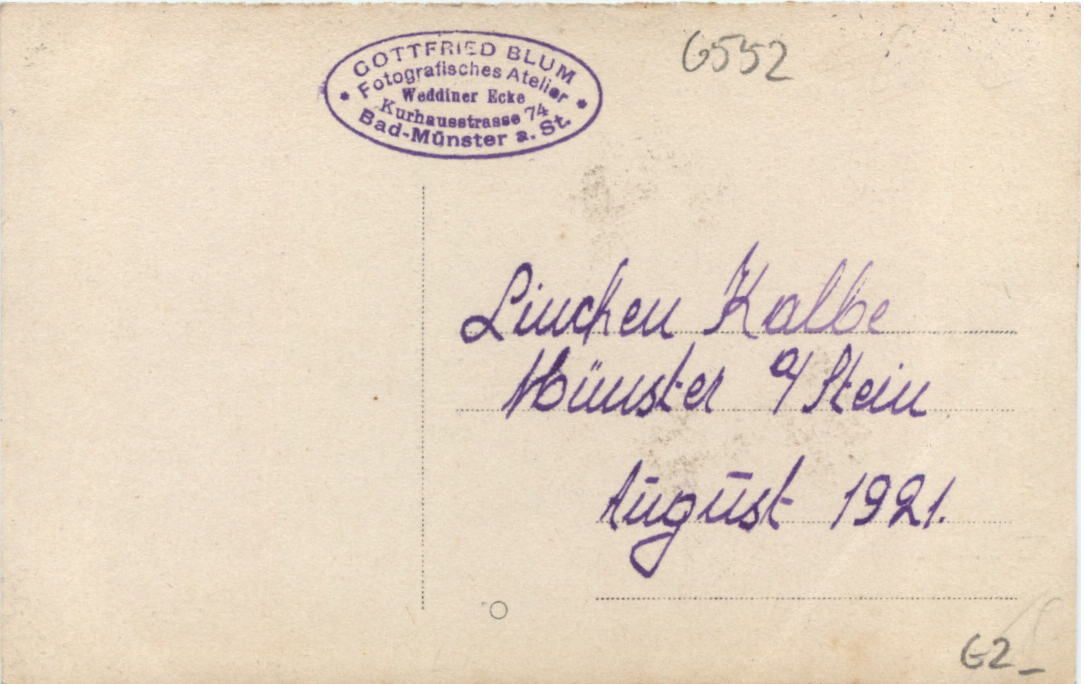 GOTTFRIED BLUM
Fotografisches Atelier
Weddiner Ecke
Kurhausstrasse 74
Bad-Münster a. St.
6552
Linchen Kalbe
Münster a/Stein
August 1921.
G2_